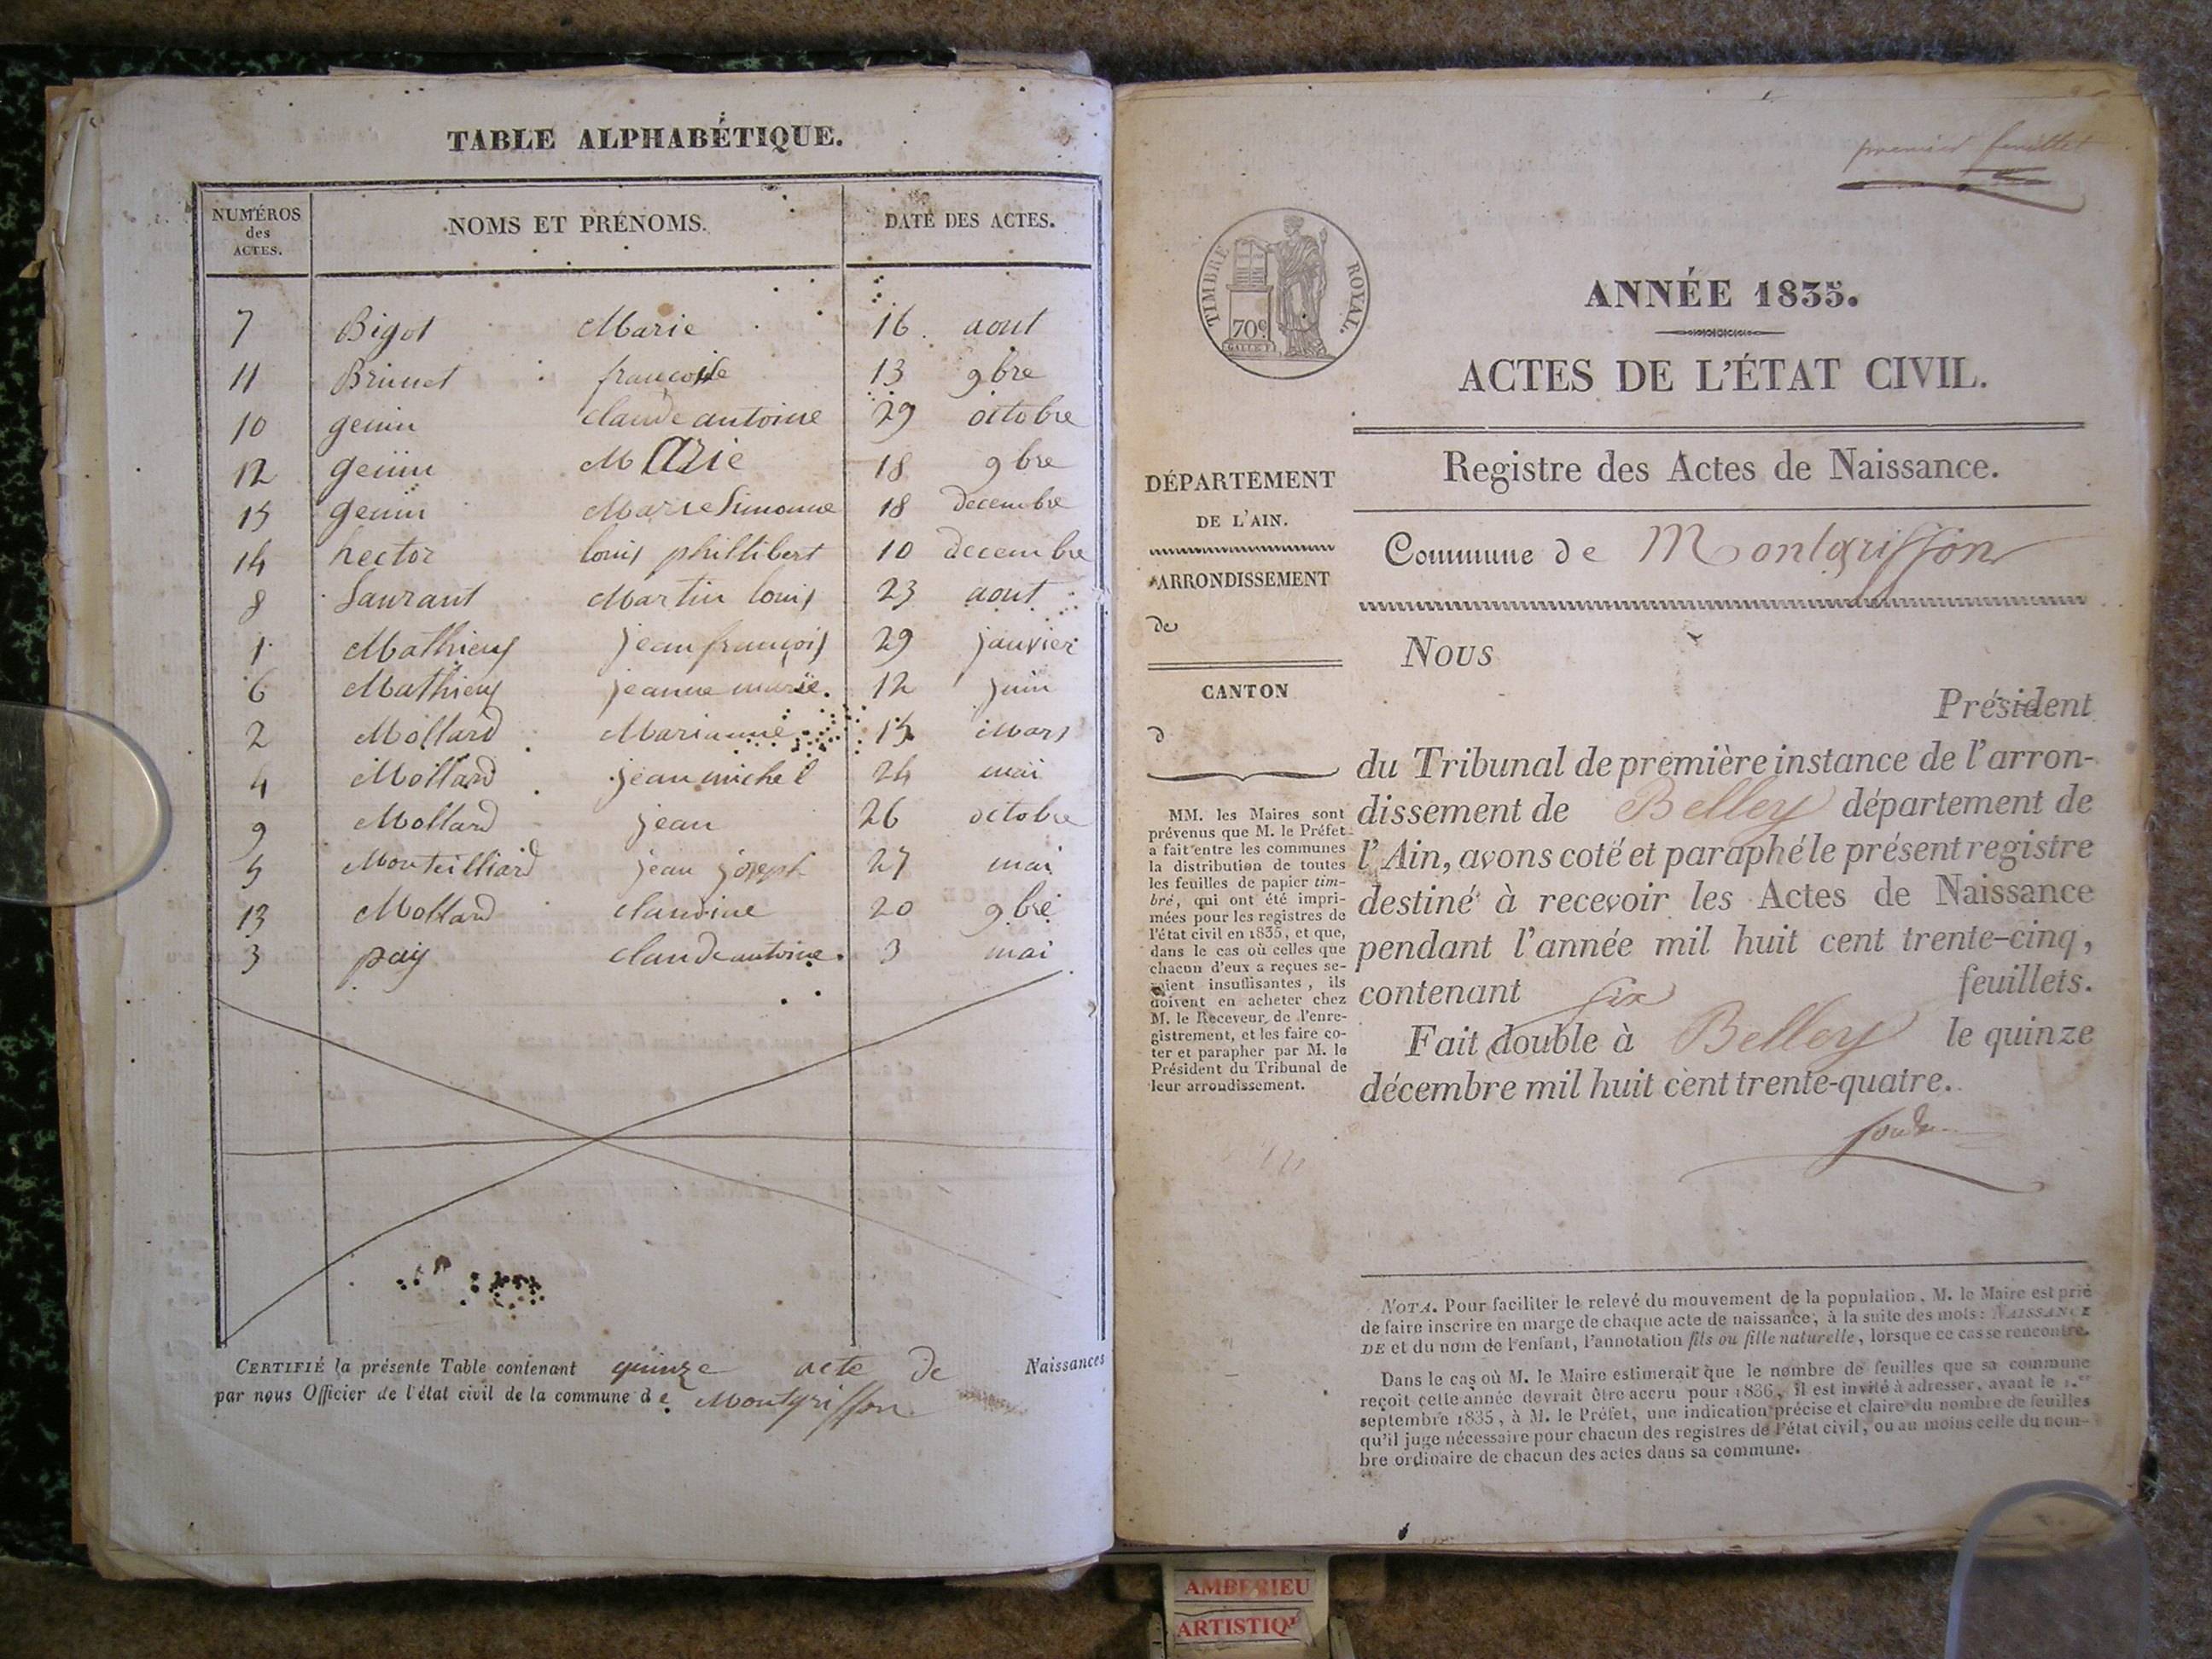 TABLE ALPHABÉTIQUE.
NUMÉROS des ACTES. NOMS ET PRÉNOMS. DATE DES ACTES.
7 Bigot Marie 16 aout
11 Brunet francoise 13 9bre
10 genin claude antoine 29 octobre
12 genin Marie 18 9bre
15 genin Marie Simonne 18 decembre
14 hector louis phillibert 10 decembre
8 Laurant Martin louis 23 aout
1 Mathieu jean françois 29 janvier
6 Mathieu jeanne marie. 12 juin
2 Mollard Marianne 15 Mars
4 Mollard jean michel 24 mai
9 Mollard jean 26 octobre
5 Monteilliard jean joseph 27 mai
13 Mollard claudine 20 9bre
3 pay claude antoine. 3 mai
CERTIFIÉ la présente Table contenant quinze acte de Naissances
par nous Officier de l'état civil de la commune de Montgriffon
premier feuillet
TIMBRE ROYAL.
70c.
ANNÉE 1835.
ACTES DE L'ÉTAT CIVIL.
Registre des Actes de Naissance.
Commune de Montgriffon
DÉPARTEMENT
DE L'AIN.
ARRONDISSEMENT
de
CANTON
d
MM. les Maires sont
prévenus que M. le Préfet
a fait entre les communes
la distribution de toutes
les feuilles de papier tim-
bré, qui ont été impri-
mées pour les registres de
l'état civil en 1835, et que,
dans le cas où celles que
chacun d'eux a reçues se-
raient insuffisantes, ils
doivent en acheter chez
M. le Receveur de l'enre-
gistrement, et les faire co-
ter et parapher par M. le
Président du Tribunal de
leur arrondissement.
Nous
Président
du Tribunal de première instance de l'arron-
dissement de Belley département de
l'Ain, avons coté et paraphé le présent registre
destiné à recevoir les Actes de Naissance
pendant l'année mil huit cent trente-cinq,
contenant six feuillets.
Fait double à Belley le quinze
décembre mil huit cent trente-quatre.
NOTA. Pour faciliter le relevé du mouvement de la population, M. le Maire est prié
de faire inscrire en marge de chaque acte de naissance, à la suite des mots: NAISSANCE
DE et du nom de l'enfant, l'annotation fils ou fille naturelle, lorsque ce cas se rencontre.
Dans le cas où M. le Maire estimerait que le nombre de feuilles que sa commune
reçoit cette année devrait être accru pour 1836, il est invité à adresser, avant le 1.er
septembre 1835, à M. le Préfet, une indication précise et claire du nombre de feuilles
qu'il juge nécessaire pour chacun des registres de l'état civil, ou au moins celle du nom-
bre ordinaire de chacun des actes dans sa commune.
AMBERIEU
ARTISTIQ